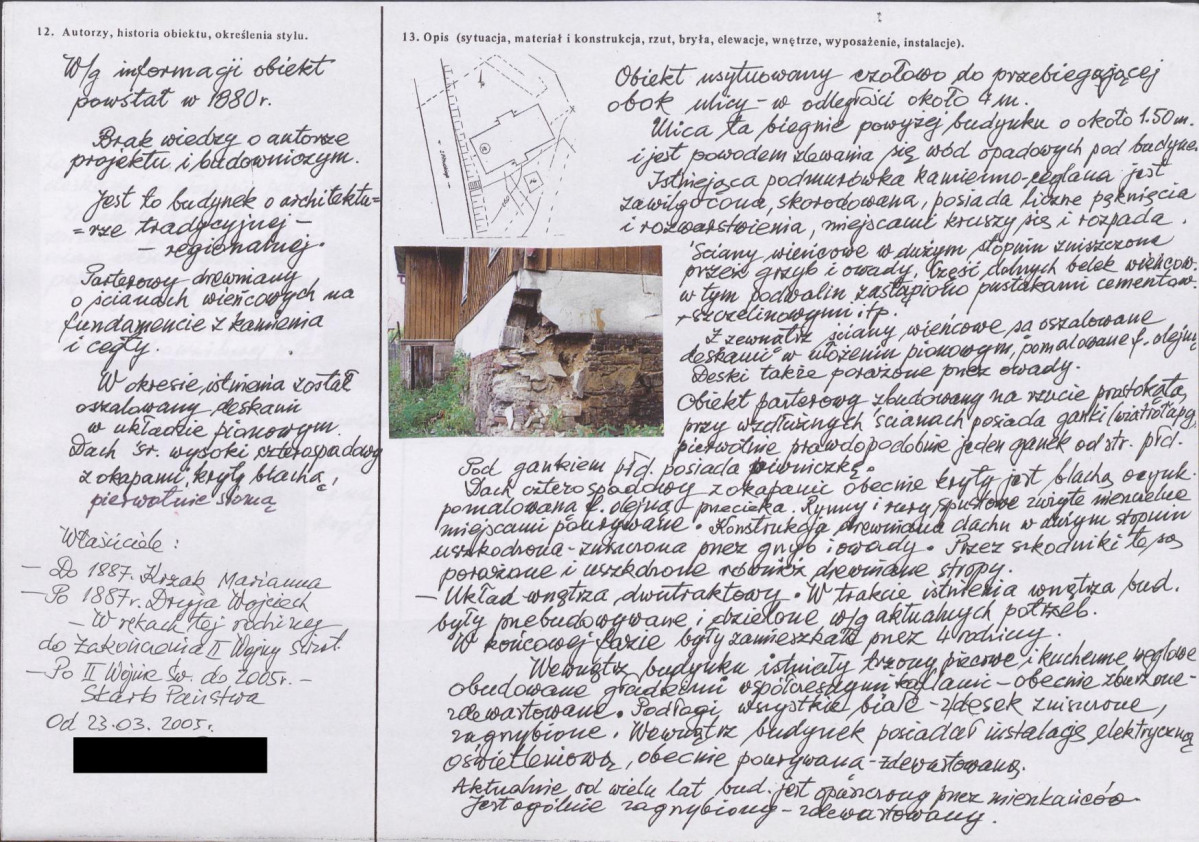 12. Autorzy, historia obiektu, określenia stylu.
W/g informacji obiekt
powstał w 1880 r.
Brak wiedzy o autorze
projektu i budowniczym.
Jest to budynek o architektu=
=rze tradycyjnej –
– regionalnej.
Parterowy drewniany,
o ścianach wieńcowych na
fundamencie z kamienia
i cegły.
W okresie istnienia został
oszalowany deskami
w układzie pionowym.
Dach śr. wysoki czterospadowy
z okapami, kryty blachą,
pierwotnie słomą
Właściciele:
– Do 1887. Krząb Marianna
– Po 1887 r. Dryja Wojciech
– W rękach tej rodziny
do zakończenia II Wojny Świat.
– Po II Wojnie Św. do 2005r. –
Skarb Państwa
Od 23.03.2005r.
13. Opis (sytuacja, materiał i konstrukcja, rzut, bryła, elewacje, wnętrze, wyposażenie, instalacje).
Obiekt usytuowany czołowo do przebiegającej
obok ulicy – w odległości około 4 m.
Ulica ta biegnie powyżej budynku o około 1.50 m.
i jest powodem zlewania się wód opadowych pod budynek.
Istniejąca podmurówka kamienno-ceglana jest
zawilgocona, skorodowana, posiada liczne pęknięcia
i rozwarstwienia, miejscami kruszy się i rozpada.
Ściany wieńcowe w dużym stopniu zniszczone
przez grzyb i owady. Część dolnych belek wieńcow.
w tym podwalin zastąpiono pustakami cementow.
– szczelinowymi itp.
Z zewnątrz ściany wieńcowe są oszalowane
deskami w ułożeniu pionowym, pomalowane f. olejną
Deski także porażone przez owady.
Obiekt parterowy zbudowany na rzucie prostokąta,
przy wzdłużnych ścianach posiada ganki (wiatrołapy)
pierwotnie prawdopodobnie jeden ganek od str. płd.
Pod gankiem płd. posiada piwniczkę.
Dach czterospadowy z okapami obecnie kryty jest blachą ocynk.
pomalowaną f. olejną – przecieka. Rynny i rury spustowe zużyte nieszczelne
miejscami pourywane. Konstrukcja drewniana dachu w dużym stopniu
uszkodzona – zniszczona przez grzyb i owady. Przez szkodniki te są
porażone i uszkodzone również drewniane stropy.
– Układ wnętrza dwutraktowy. W trakcie istnienia wnętrza bud.
były przebudowywane i dzielone w/g aktualnych potrzeb.
W końcowej fazie były zamieszkałe przez 4 rodziny.
Wewnątrz budynku istniały trzony piecowe i kuchenne węglowe
obudowane gładkimi współczesnymi kaflami – obecnie zburzone –
zdewastowane. Podłogi wszystkie białe – z desek zniszczone,
zagrzybione. Wewnątrz budynek posiadał instalację elektryczną
oświetleniową, obecnie pourywana – zdewastowana.
Aktualnie od wielu lat bud. jest opuszczony przez mieszkańców.
Jest ogólnie zagrzybiony – zdewastowany.